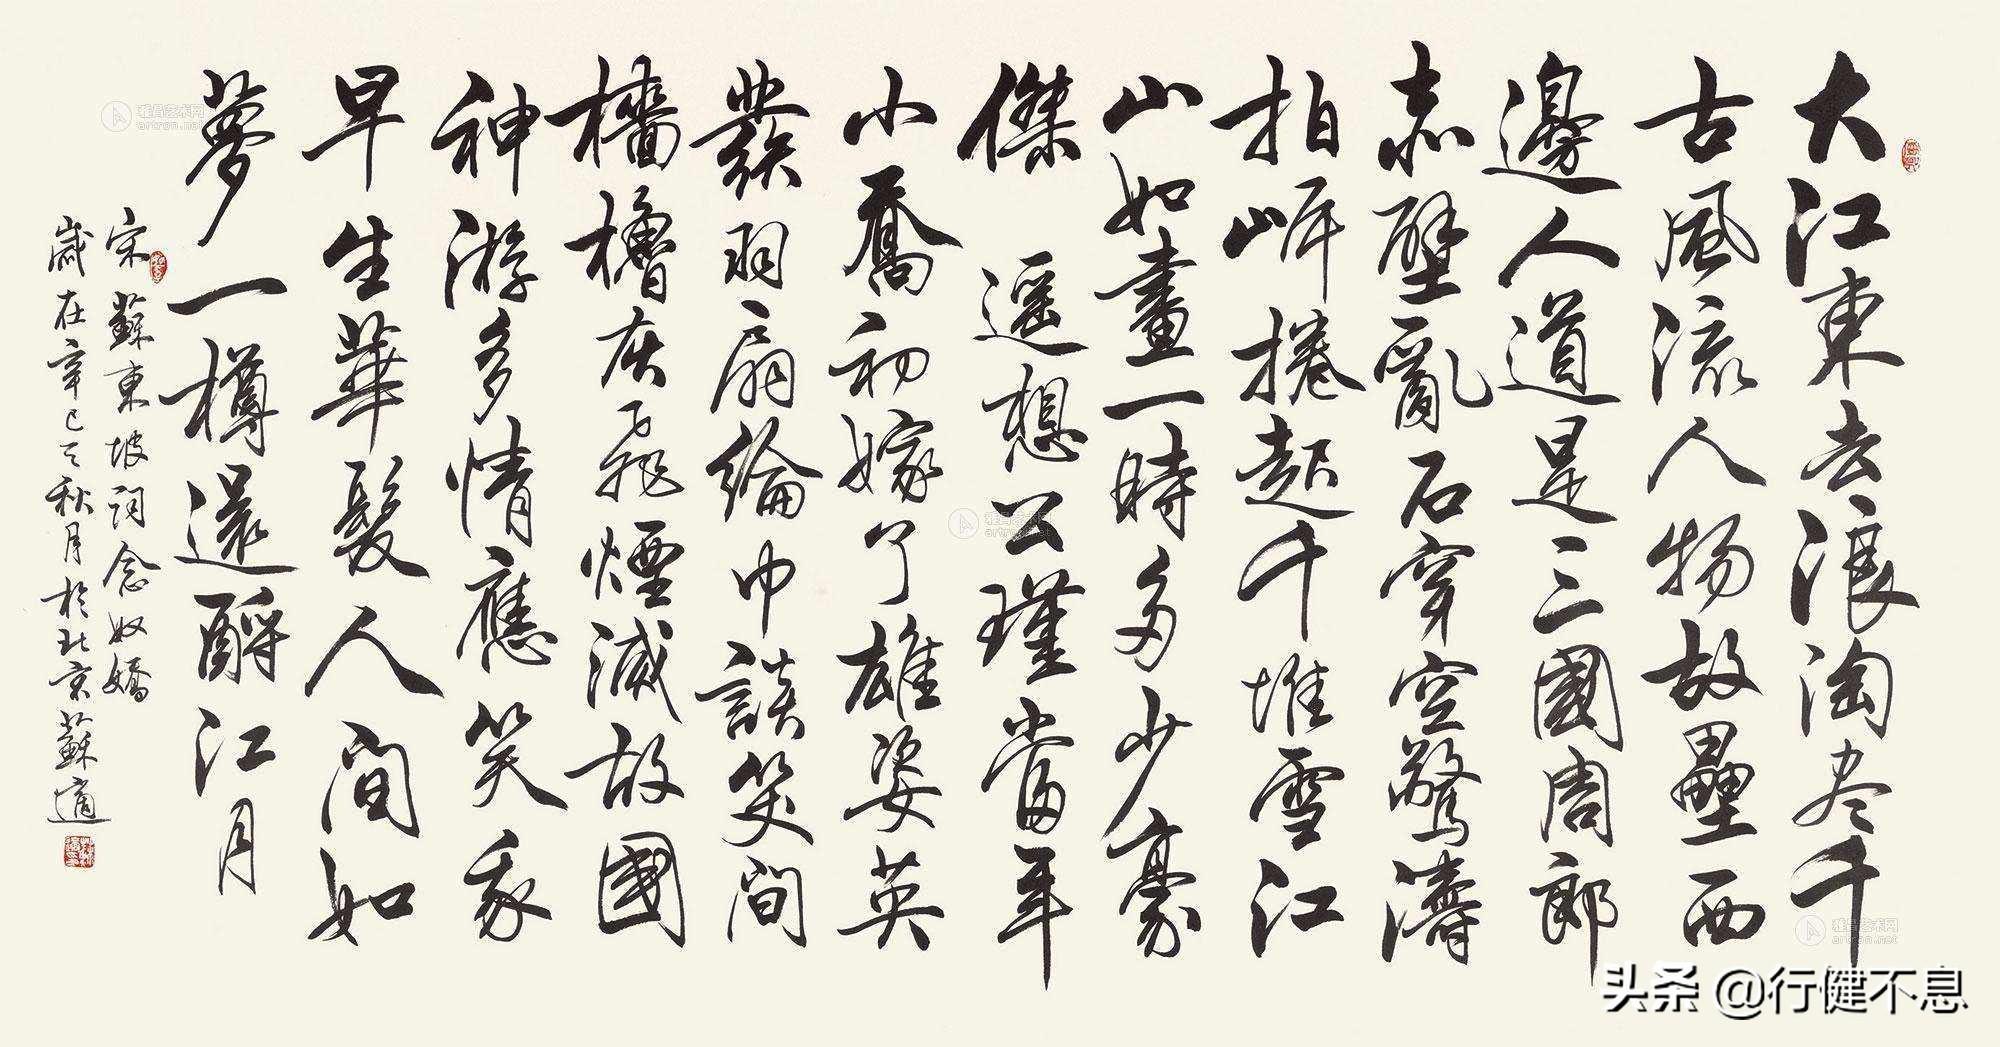 大江東去浪淘尽千
古風流人物故壘西
邊人道是三國周郎
赤壁亂石穿空驚濤
拍岸捲起千堆雪江
山如畫一時多少豪
傑遥想公瑾當年
小喬初嫁了雄姿英
發羽扇綸巾談笑間
檣櫓灰飛煙滅故國
神游多情應笑我
早生華髮人間如
夢一樽還酹江月
宋蘇東坡詞念奴嬌
歲在辛巳之秋月於北京蘇適
雅昌艺术网
artron.net
雅昌艺术网
artron.net
雅昌艺术网
artron.net
头条 @行健不息